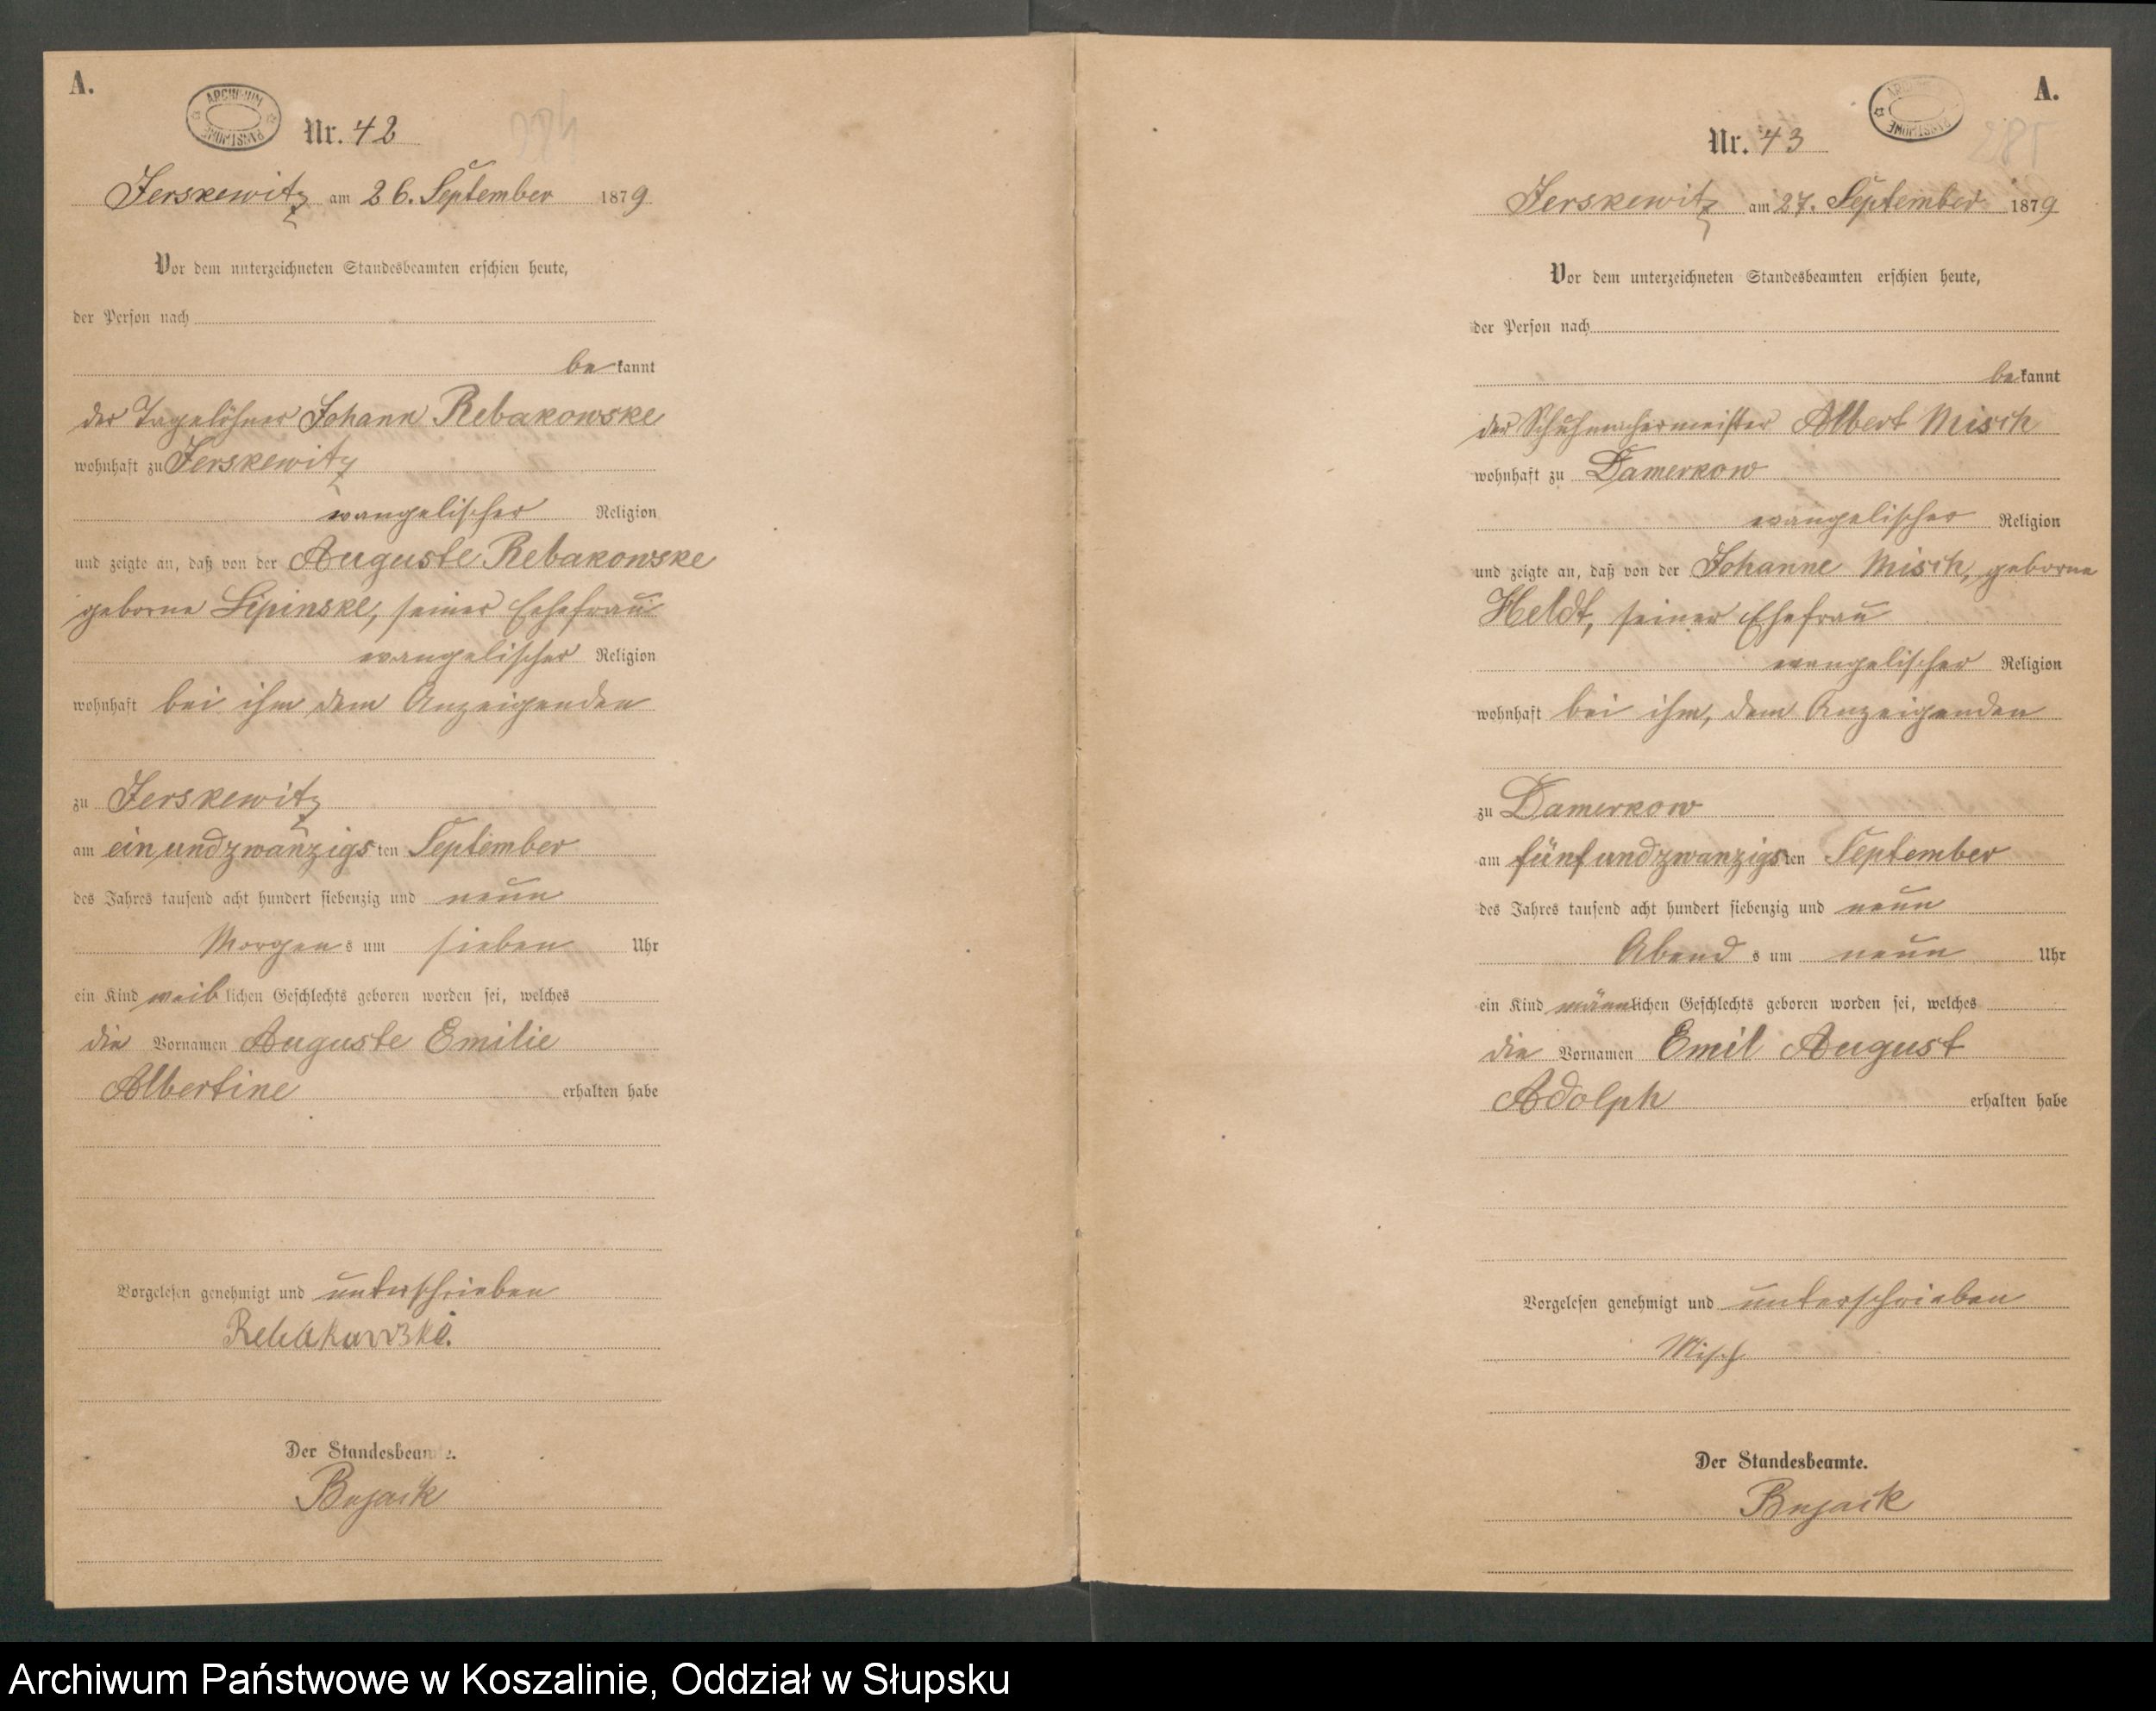 A.
ARCHIWUM PAŃSTWOWE
Nr. 42
Jerskewitz am 26. September 1879
Vor dem unterzeichneten Standesbeamten erschien heute,
der Person nach
bekannt
der Tagelöhner Johann Rebakowske
wohnhaft zu Jerskewitz
evangelischer Religion
und zeigte an, daß von der Auguste Rebakowske
geborne Lipinske, seiner Ehefrau
evangelischer Religion
wohnhaft bei ihm dem Anzeigenden
zu Jerskewitz
am ein und zwanzigsten September
des Jahres tausend acht hundert siebenzig und neun
Morgens um sieben Uhr
ein Kind weiblichen Geschlechts geboren worden sei, welches
die Vornamen Auguste Emilie
Albertine erhalten habe
Vorgelesen genehmigt und unterschrieben
Rebakowske.
Der Standesbeamte.
Bujack
A.
ARCHIWUM PAŃSTWOWE
285
Nr. 43
Jerskewitz am 27. September 1879
Vor dem unterzeichneten Standesbeamten erschien heute,
der Person nach
bekannt
der Schuhmachermeister Albert Misch
wohnhaft zu Damerkow
evangelischer Religion
und zeigte an, daß von der Johanne Misch, geborne
Heldt, seiner Ehefrau
evangelischer Religion
wohnhaft bei ihm, dem Anzeigenden
zu Damerkow
am fünf und zwanzigsten September
des Jahres tausend acht hundert siebenzig und neun
Abends um neun Uhr
ein Kind männlichen Geschlechts geboren worden sei, welches
die Vornamen Emil August
Adolph erhalten habe
Vorgelesen genehmigt und unterschrieben
Misch
Der Standesbeamte.
Bujack
Archiwum Państwowe w Koszalinie, Oddział w Słupsku